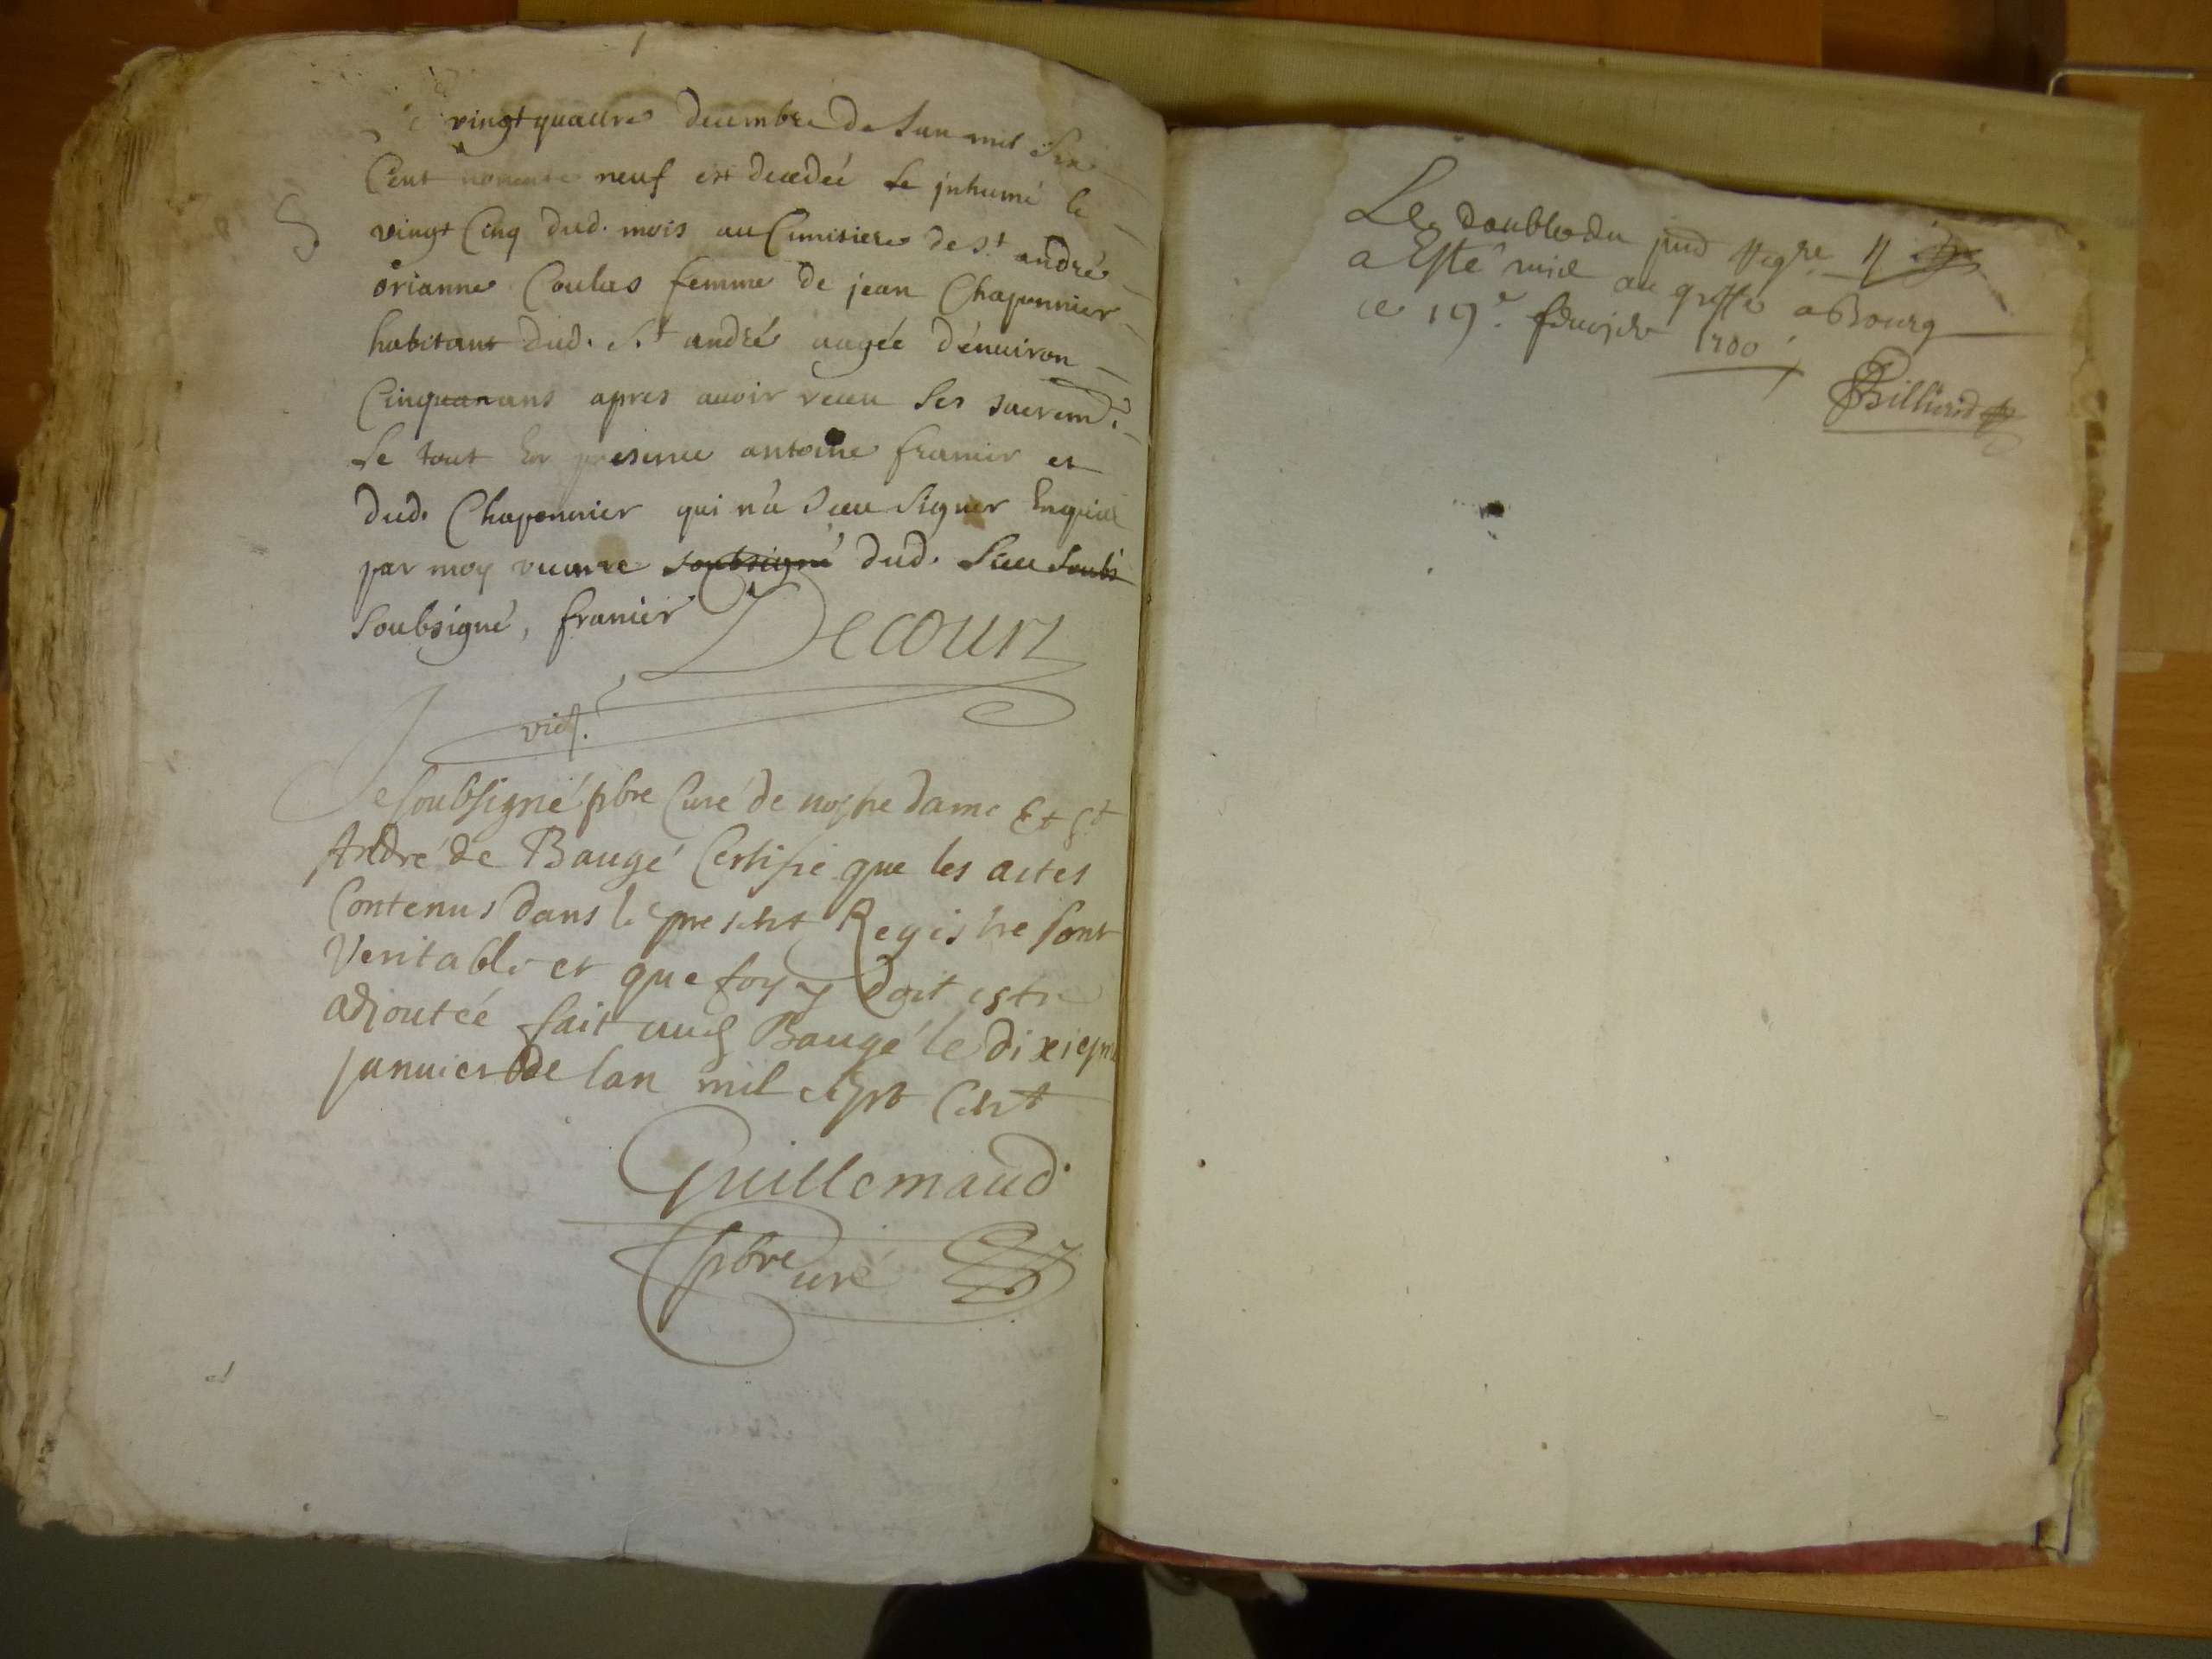 vingt quattre decembre de lan mil six
Cent nonente neuf est decedée & jnhumé le
vingt Cinq dud. mois au Cimitiere de St andré
orianne Coulas femme de jean Chaponnier
habitant dud. St andré aagée dénuiron
Cinquanans apres auoir receu ses sacremts.
le tout En presence antoine franier et
dud. Chaponnier qui n'a sceu signer Enquis
par moy vicaire soubsigné dud. lieu soubs
soubsigné, franier Decourt
vic.
Je soubsigné pbre Curé de nostre dame Et St
André de Baugé Certifie que les actes
Contenus dans le present Registre sont
Veritable et que foy y doit estre
adjoutée fait aud Baugé le dixiem
januier de lan mil sept Cent
Guillemaud
pbre curé
Le double du pnt Regre
a Esté mis au greffe a Bourg
ce 19e. feurier 1700
Billiard